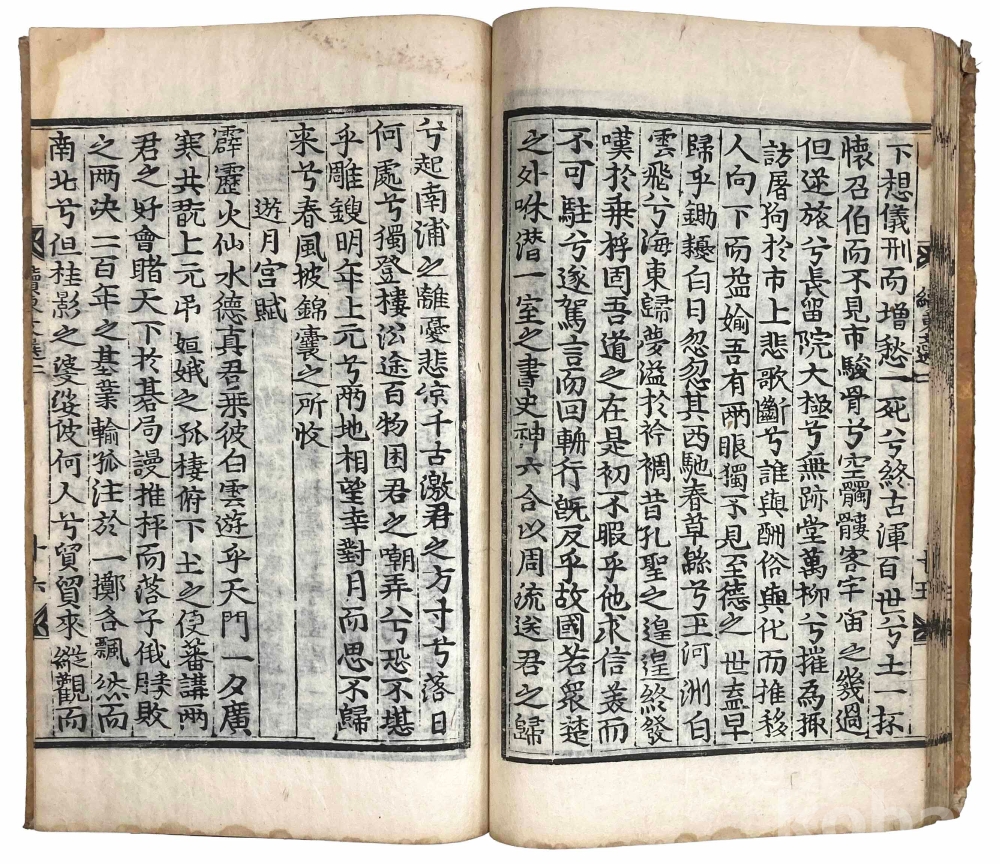 下想儀刑而增愁一死兮終古渾百世兮土一抔
懷召伯而不見市駿骨兮空髑髏客宇宙之幾過
但逆旅兮長留院大極兮無跡堂萬柳兮摧為掫
訪屠狗於市上悲歌斷兮誰與酬俗與化而推移
人向下而益婾吾有兩眼獨不見至德之世盍早
歸乎鋤耰白日忽忽其西馳春草綠兮玉河洲白
雲飛兮海東歸夢溢於衿裯昔孔聖之遑遑終發
嘆於乗桴固吾道之在是初不暇乎他求信羙而
不可駐兮逐駕言而回軸行旣反乎故國若衆楚
之外咻潜一室之書史神六合以周流送君之歸
兮起南浦之離憂悲凉千古激君之方寸兮落日
何處兮獨登樓沿途百物困君之嘲弄兮恐不堪
乎雕鎪明年上元兮兩地相望幸對月而思不歸
來兮春風披錦囊之所收
遊月宫賦
霹靂火仙水德真君乗彼白雲遊乎天門一夕廣
寒共翫上元弔姮娥之孤棲俯下土之使蕃講兩
君之好會賭天下於碁局謾推枰而落子俄勝敗
之两决二百年之基業輸孤注於一擲各飄然而
南北兮但桂影之婆娑彼何人兮貿貿來縱觀而
續東文選二
十六